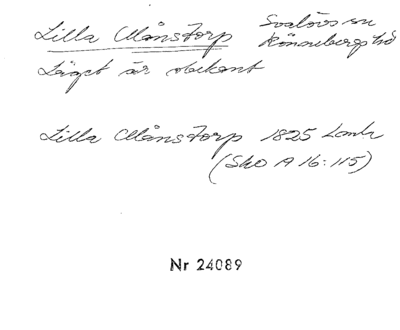 Lilla Månstorp Svalövs sn
Rönnebergs hd
Läget är obekant
Lilla Månstorp 1825 Lantm
(Sko A 16:115)
Nr 24089